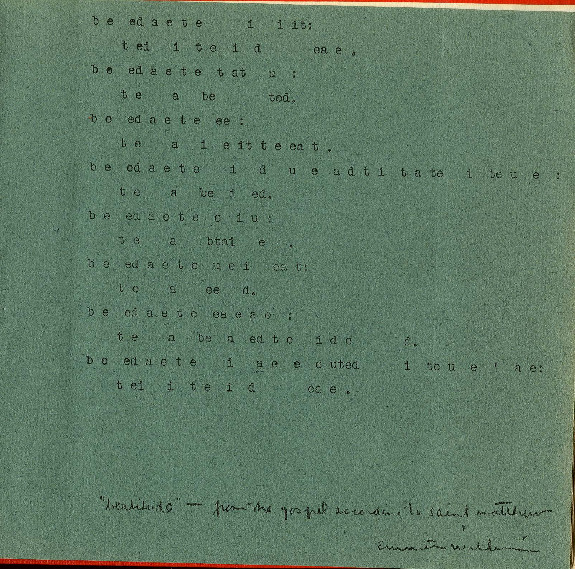 be edaete i iit:
tei i te i d oae.
be edaete tat u :
te a be ted.
be edaete ee:
be a i eitteeat.
be edaete i d u e adti tate i teu e :
te a be i ed.
be edaete e iu:
te a btai e .
be edaete u e i eat:
te a ee d.
be edaete eaeae :
te a be a edte ide .
be edaete i ae e euted i teu e ' ae:
tei i te i d oae.
"beatitude" — from the gospel according to saint matthew
emmett williams